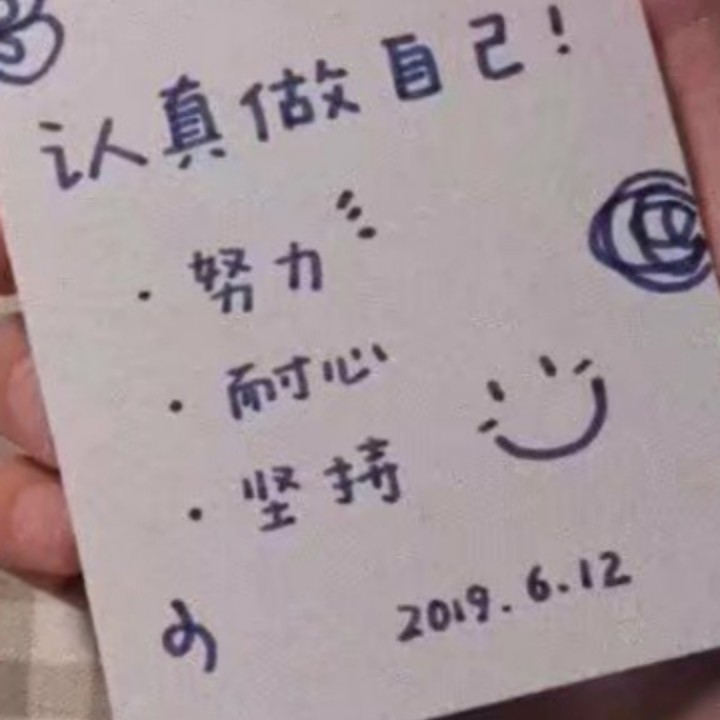 认真做自己!
· 努力
· 耐心
· 坚持
2019.6.12